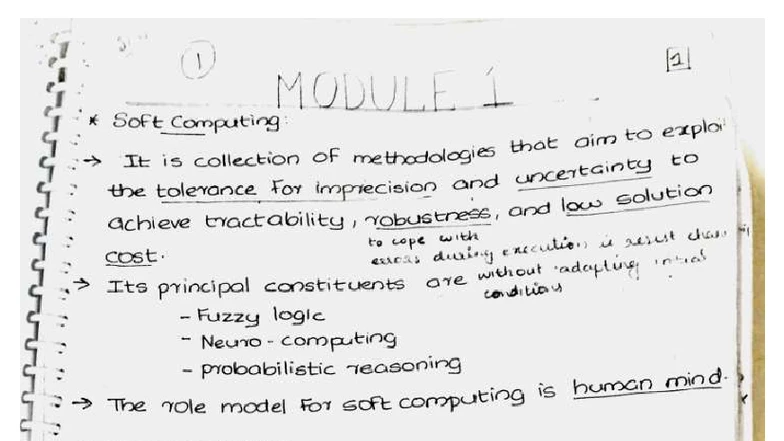 1
1
MODULE 1
* Soft Computing:
→ It is collection of methodologies that aim to exploi
the tolerance for imprecision and uncertainty to
achieve tractability, robustness, and low solution
cost.
to cope with
errors during execution, i.e resist
without adapting initial
conditions
→ Its principal constituents are
- Fuzzy logic
- Neuro-computing
- probabilistic reasoning
→ The role model for soft computing is human mind.